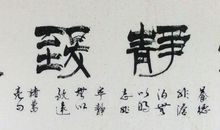 靜
致
養德
非澹
泊無
以明
志非
寧靜
無以
致遠
諸葛
亮句